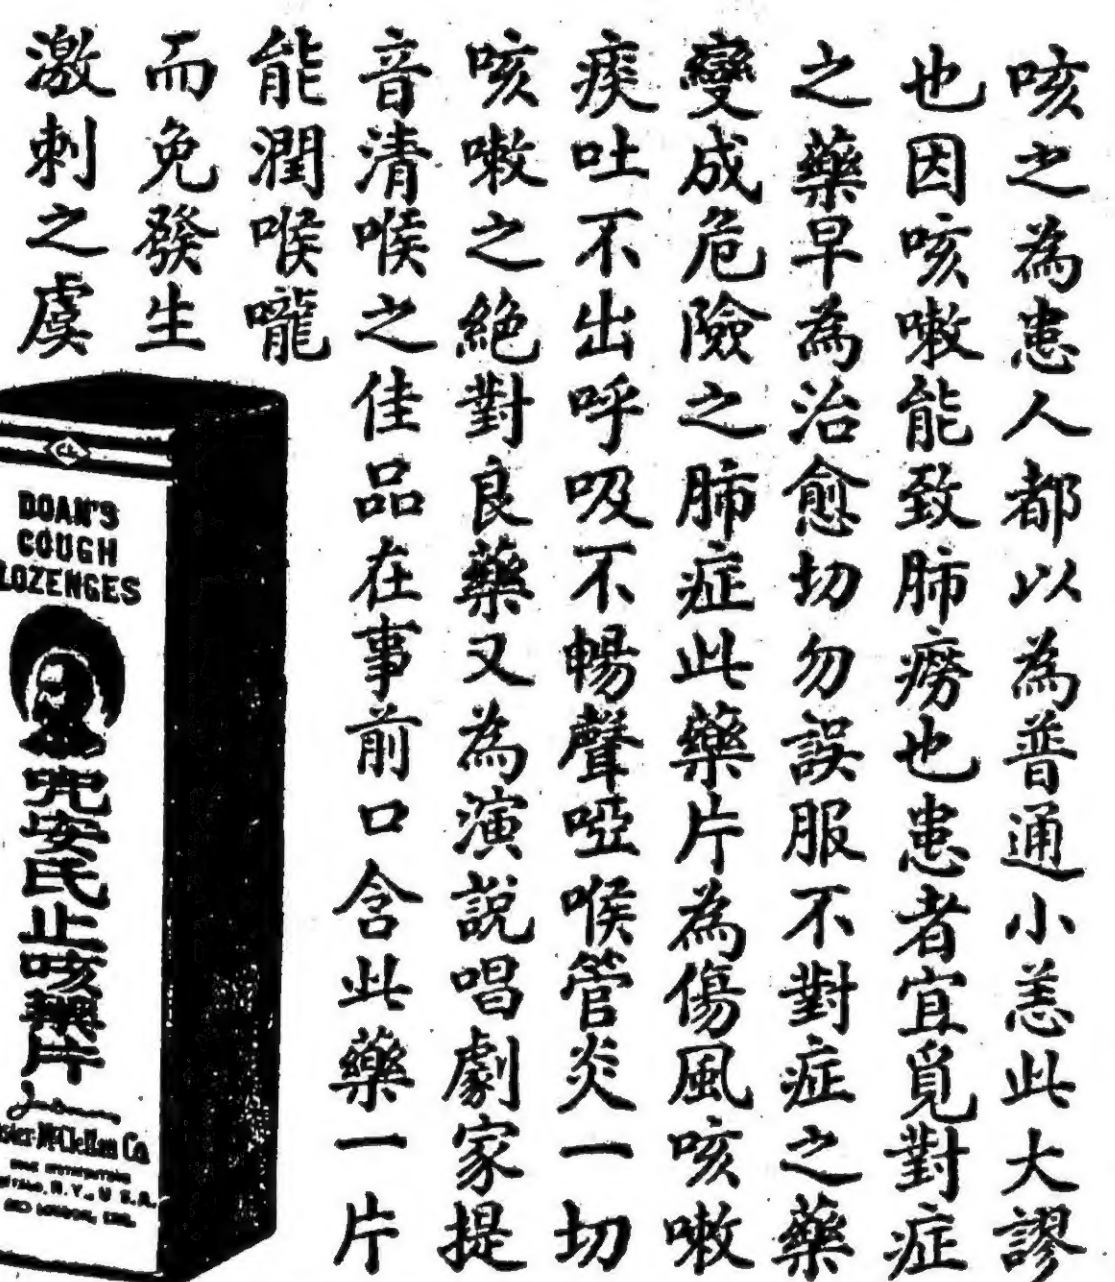 咳之為患人都以為普通小恙此大謬
也因咳嗽能致肺癆也患者宜覓對症
之藥早為治愈切勿誤服不對症之藥
變成危險之肺症此藥片為傷風咳嗽
痰吐不出呼吸不暢聲啞喉管炎一切
咳嗽之絕對良藥又為演說唱劇家提
音清喉之佳品在事前口含此藥一片
能潤喉嚨
而免發生
激刺之虞
DOAN'S
COUGH
LOZENGES
兜安氏止咳藥片
McClellan Co.
N.Y., U.S.A.
AND LONDON, ENG.